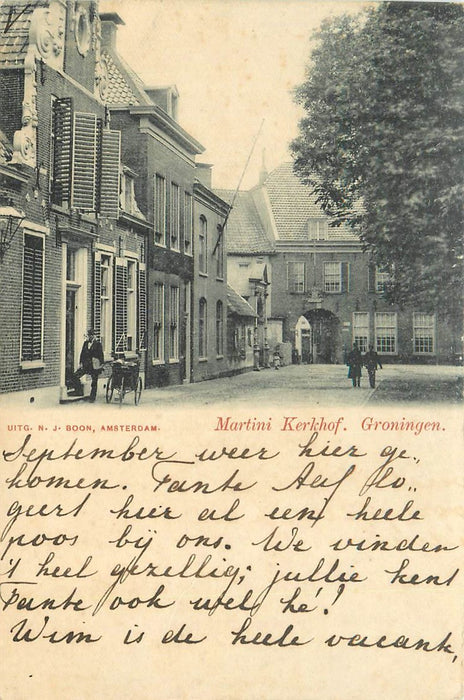 UITG. N. J. BOON, AMSTERDAM.
Martini Kerkhof. Groningen.
September weer hier ge„
komen. Tante Aaf lo„
geert hier al een heele
poos bij ons. We vinden
't heel gezellig; jullie kent
Tante ook wel hè!
Wim is de heele vacant,